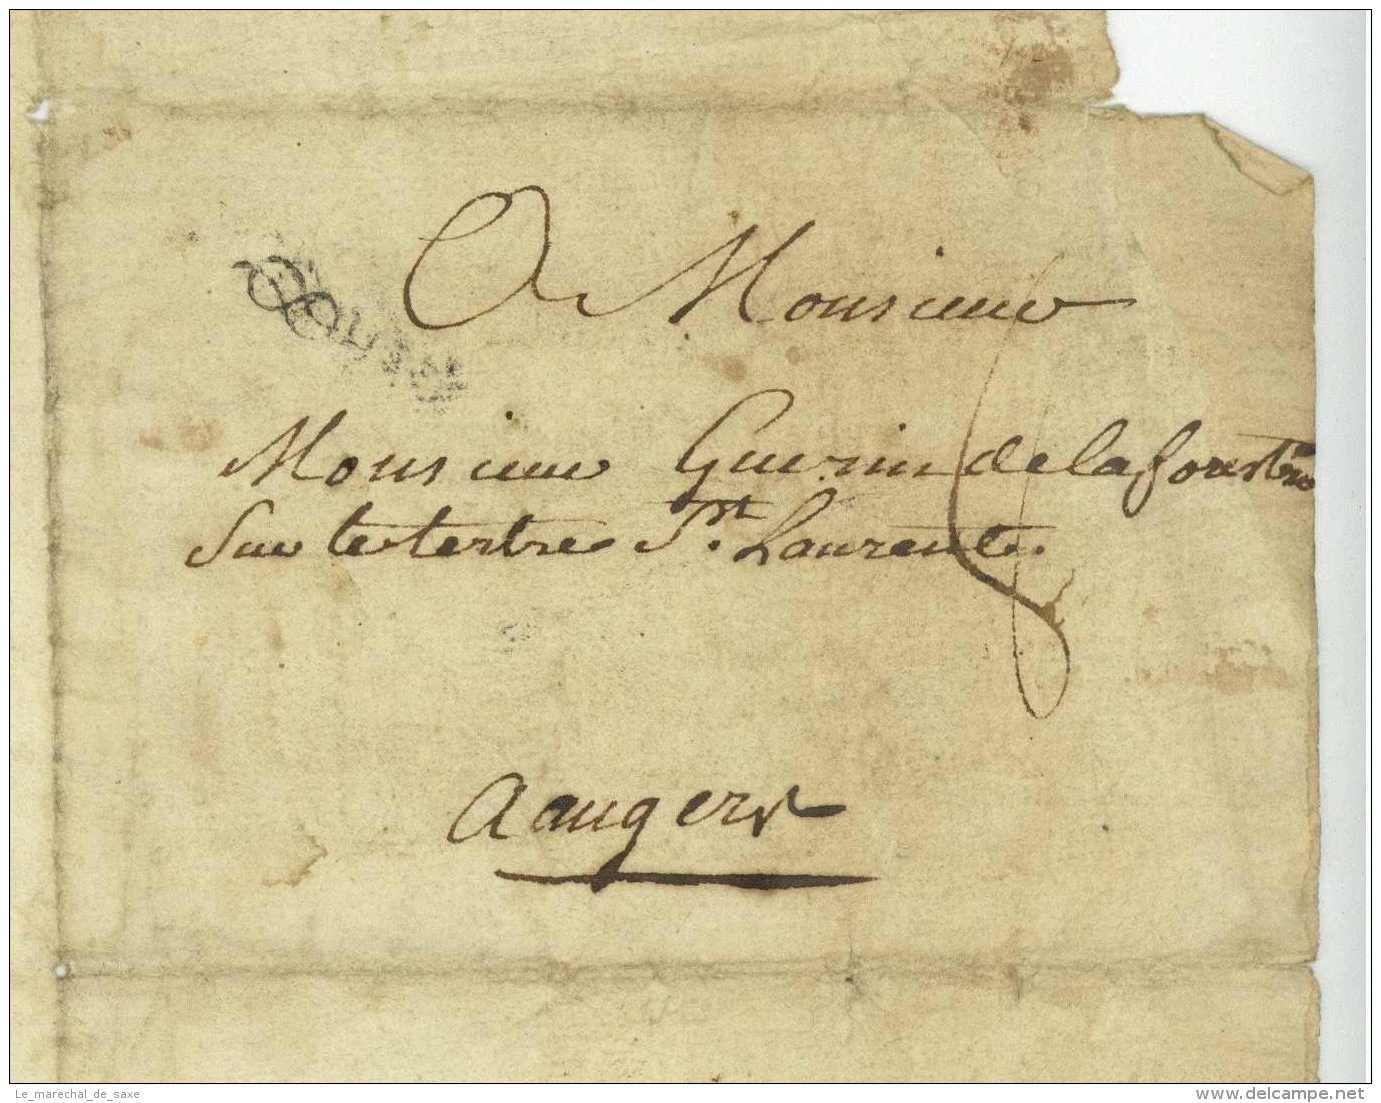 A Monsieur
Monsieur Guerin de la forestrie
Sur le tertre St. Laurent.
A angers
Le_marechal_de_saxe
www.delcampe.net